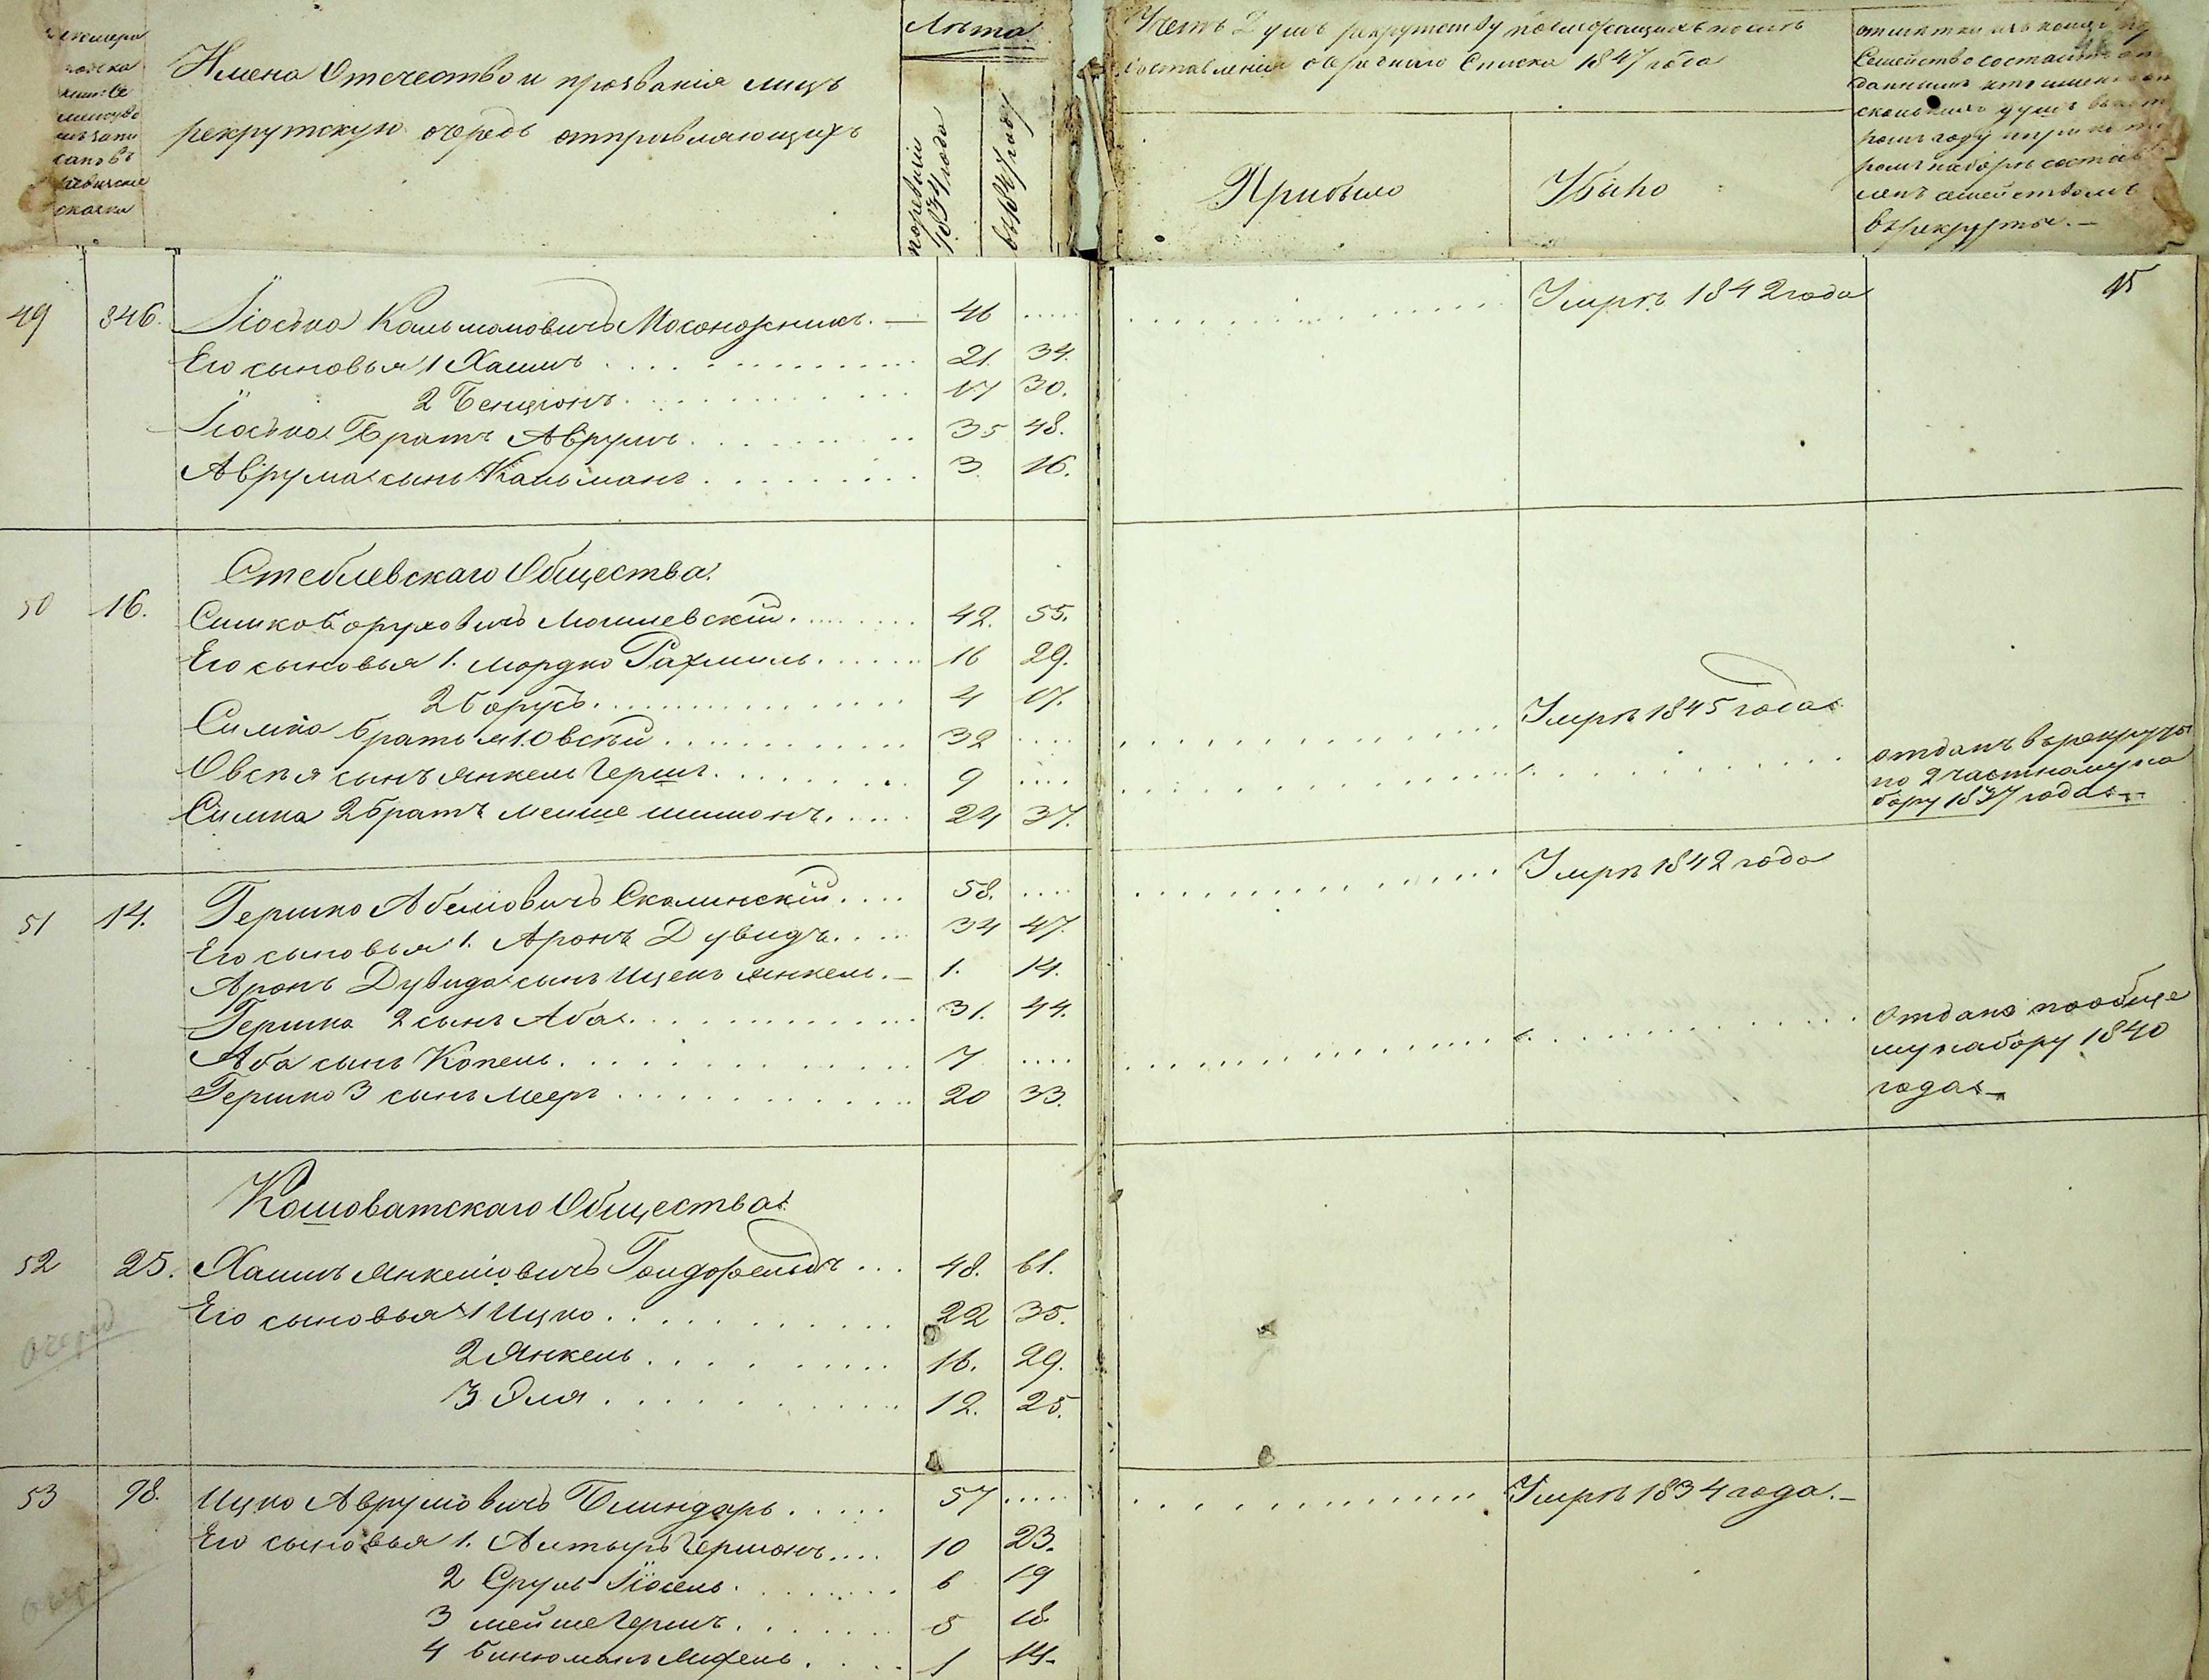 Имена Отечество и прозванія лицъ
рекрутскую очередь отправляющихъ
Лѣта
по ревизіи 1834 года
въ 1847 году
Счетъ душъ рекрутству
составленія очереднаго Списка 1847 года
Прибыло
Убыло
Семейство
рекруты.—
15
49 346. Іосько Кальмановичъ Мосонжникъ.— 46 ..... Умръ 1842 года
Его сыновья 1 Хаимъ 21. 34.
2 Бенціонъ 17 30.
Іоська Братъ Аврумъ 35 48.
Аврума сынъ Кальманъ 3 16.
Стеблевскаго Общества.
50 16. Симко Боруховичъ Могилевскій 42. 55.
Его сыновья 1. Мордко Рахмиль 16 29.
2 Борухъ 4 17.
Симка братья 1. Овсѣй 32 .... Умръ 1845 года
Овсѣя сынъ Янкель Гершъ 9 .... отданъ въ рекруты
по 2 частному на
бору 1837 года
Симка 2 братъ Мейше Шимонъ 24 37.
51 14. Гершко Абелиовичъ Скалинскій 58. .... Умръ 1842 года
Его сыновья 1. Аронъ Дувидъ 34 47.
Аронъ Дувида сынъ Ицекъ Янкель.— 1. 14.
Гершка 2 сынъ Аба 31. 44.
Аба сынъ Копель 7 .... Отданъ по обще
му набору 1840
года
Гершко 3 сынъ Меер 20 33.
Кошоватскаго Общества.
52 25. Хаимъ Янкелиовичъ Гольдфельдъ 48. 61.
очеред
Его сыновья 1 Ицко 22 35.
2 Янкель 16. 29.
3 Эля 12. 25.
53 98. Ицко Аврумовичъ Блиндарь 57 ..... Умръ 1834 года.—
Его сыновья 1. Алтыръ Гершонъ 10 23.
2 Сруль Іосель 6 19
3 Мейше Гершъ 5 18.
4 Бинюминъ Михель 1 14.